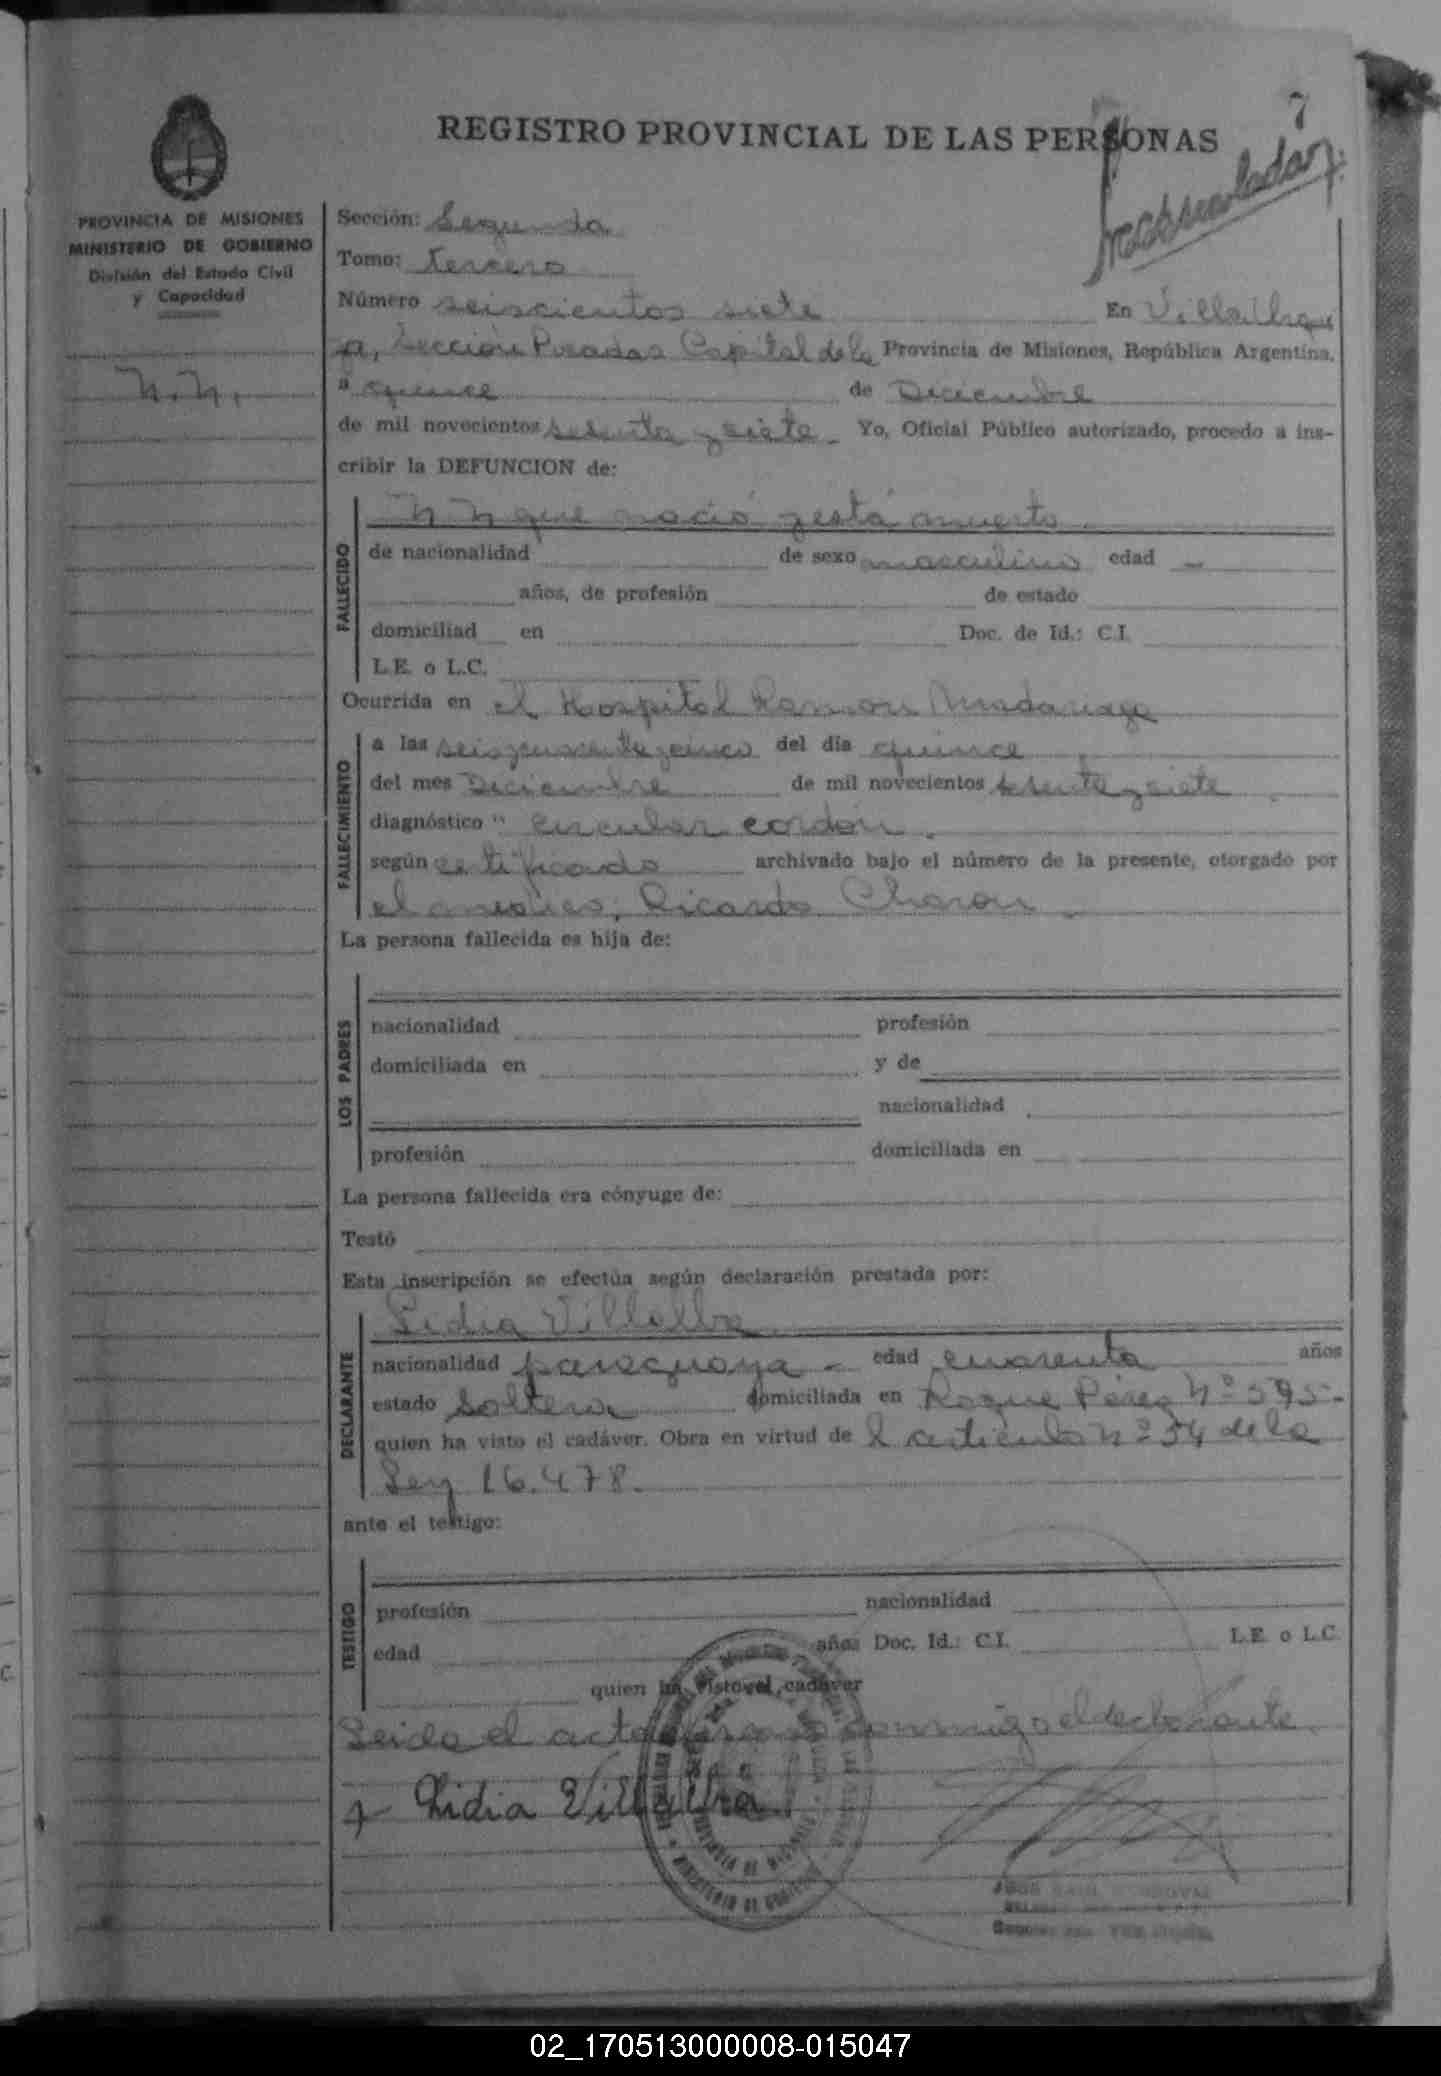 7
REGISTRO PROVINCIAL DE LAS PERSONAS
PROVINCIA DE MISIONES
MINISTERIO DE GOBIERNO
División del Estado Civil
y Capacidad
N.N.
Sección: Segunda
Tomo: tercero
Número seiscientos siete En
Sección Posadas Capital de la Provincia de Misiones, República Argentina,
a quince de Diciembre
de mil novecientos sesenta y siete. Yo, Oficial Público autorizado, procedo a ins-
cribir la DEFUNCION de:
N N que nació y está muerto
FALLECIDO
de nacionalidad de sexo masculino edad —
años, de profesión de estado
domiciliad en Doc. de Id.: C.I.
L.E. o L.C.
Ocurrida en el Hospital Ramon Madariaga
FALLECIMIENTO
a las seis y cuarenta y cinco del día quince
del mes Diciembre de mil novecientos sesenta y siete
diagnóstico " circular cordón.
según certificado archivado bajo el número de la presente, otorgado por
el medico; Ricardo
La persona fallecida es hija de:
LOS PADRES
nacionalidad profesión
domiciliada en y de
nacionalidad
profesión domiciliada en
La persona fallecida era cónyuge de:
Testó
Esta inscripción se efectúa según declaración prestada por:
DECLARANTE
Lidia Villalba
nacionalidad paraguaya - edad cuarenta años
estado Soltera domiciliada en Roque Pérez Nº 595-
quien ha visto el cadáver. Obra en virtud de l articulo Nº 54 de la
Ley 16.478.
ante el testigo:
TESTIGO
profesión nacionalidad
edad años Doc. Id.: C.I. L.E. o L.C.
quien ha visto el cadáver
Leida el acta conmigo el declarante.
Lidia Villalba
02_170513000008-015047